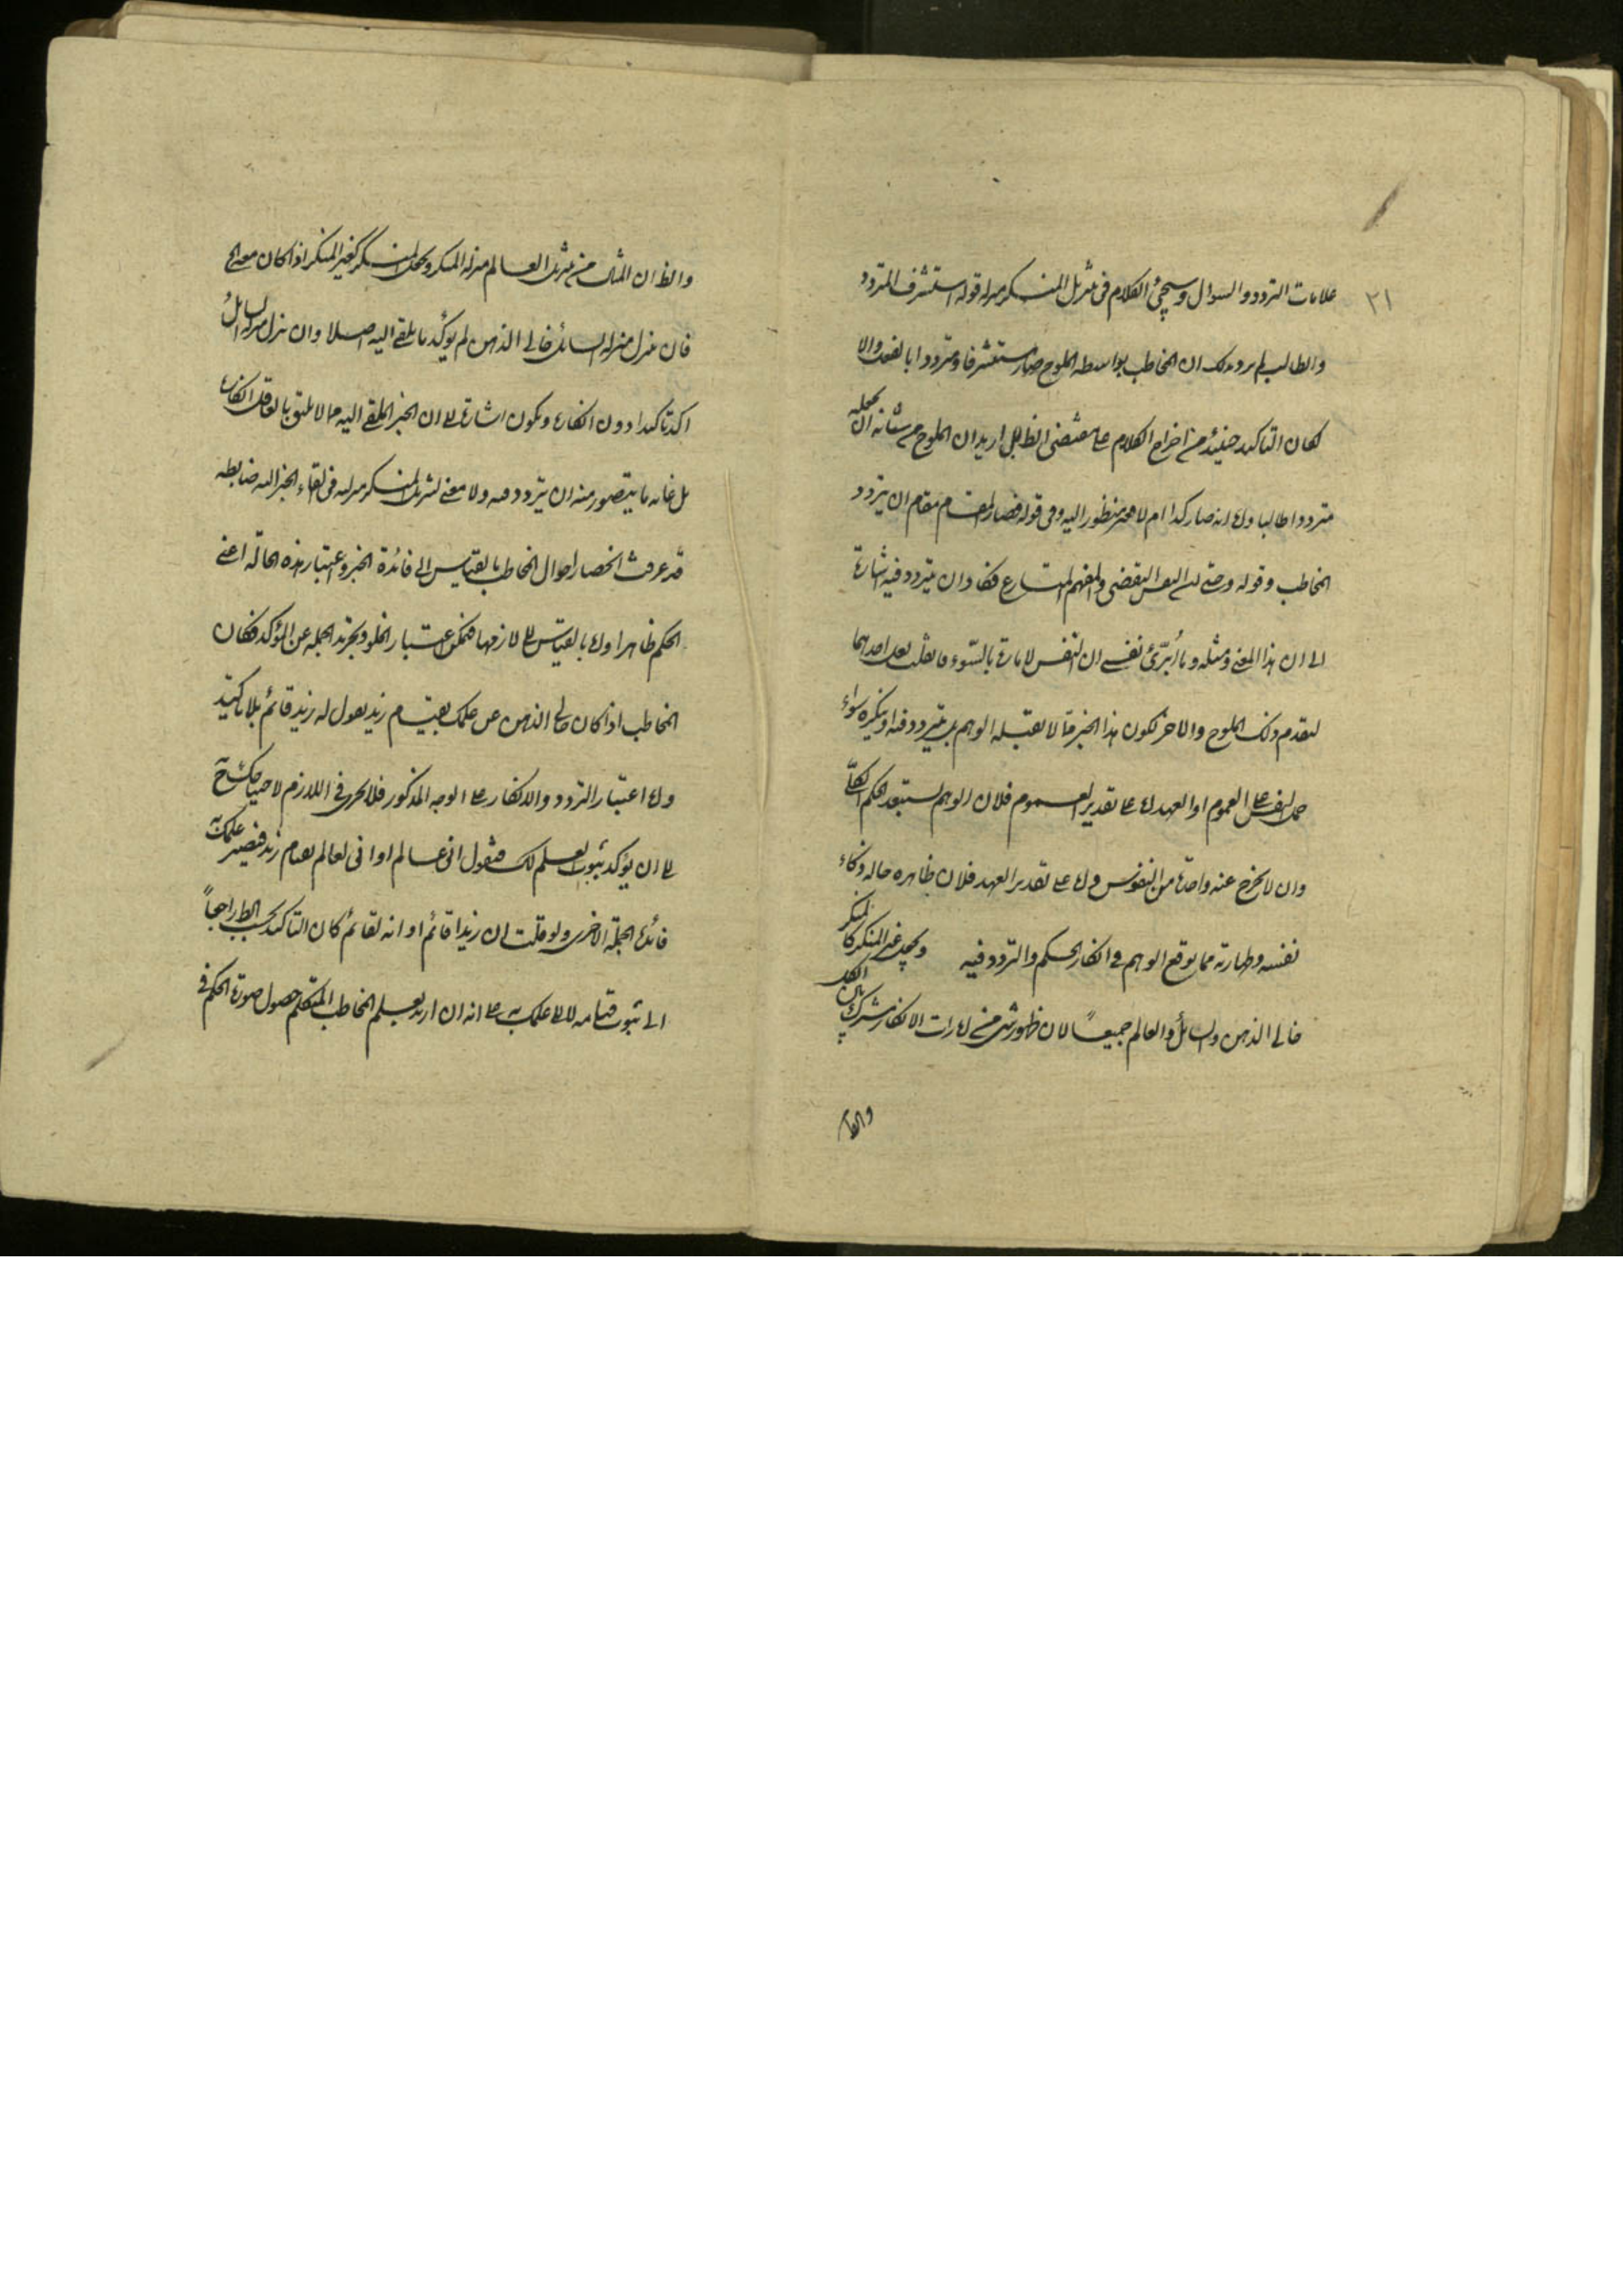 ٢١
علامات التردد والسؤال وسيجئ الكلام فى تنزيل المنكر منزلة قوله استشرف المتردد
والطالب لم يرد بذلك ان المخاطب بواسطة الملوح صار مستشرفا ومترددا بالفعل والا
لكان التاكيد حينئذ من اخراج الكلام على مقتضى الظ بل اريد ان الملوح من شأنه ان يجعله
مترددا طالبا واما انه صار كذا ام لا فغير منظور اليه وفى قوله فصار المقام مقام ان يتردد
المخاطب وقوله حتى ان النفس اليقظى والفهم المتسارع يكاد ان يتردد فيه اشارة
الى ان هذا المعنى ومثله وما أبرّئ نفسى ان النفس لامارة بالسّوء
لتقدم ذلك الملوح والاخر لكون هذا الخبر مما لا يقبله الوهم بل يتردد فيه او ينكره سواء
حمل النفس على العموم او العهد اما على تقدير العموم فلان الوهم يستبعد الحكم الكلّى
وان لا يخرج عنه واحدة من النفوس واما على تقدير العهد فلان ظاهره حاله وذكاء
نفسه وطهارته مما يوقع الوهم فى انكار الحكم والتردد فيه ويجعل غير المنكر كالمنكر
خالى الذهن والسائل والعالم جميعاً لان ظهور شئ من امارات الانكار مشترك بين الكل
والظ
والظ ان المثال من تنزيل العالم منزلة المنكر ويجعل المنكر كغير المنكر اذا كان معه الخ
فان نزل منزلة السائل خالى الذهن لم يؤكد ما يلقى اليه اصلا وان نزل منزلة السائل
اكد تاكيدا دون انكاره ويكون اشارة الى ان الخبر الملقى اليه مما لا يليق بالعاقل انكاره
بل غاية ما يتصور منه ان يتردد فيه ولا معنى لتنزيل المنكر منزلته فى القاء الخبر اليه ضابطه
قد عرفت انحصار احوال المخاطب بالقياس الى فائدة الخبر واعتبار هذه الحالة اعنى
الحكم ظاهرا واما بالقياس الى لازمها فيمكن اعتبار الخلو وتجريد الجملة عن المؤكد فكان
المخاطب اذا كان خالى الذهن عن علمك بقيام زيد يقول له زيد قائم بلا تاكيد
واما اعتبار التردد والانكار على الوجه المذكور فلا يجرى فى اللازم لاحتياجك ح
الى ان يؤكد ثبوت العلم لك فتقول انى عالم او انى لعالم بقيام زيد فيصير علمك به
فائدة الجملة الاخرى ولو قلت ان زيدا قائم او انه لقائم كان التاكيد بحسب الظ راجعاً
الى ثبوت قيامه لا الى علمك به على انه ان اريد بعلم المخاطب المتكلم حصول صورة الحكم فى